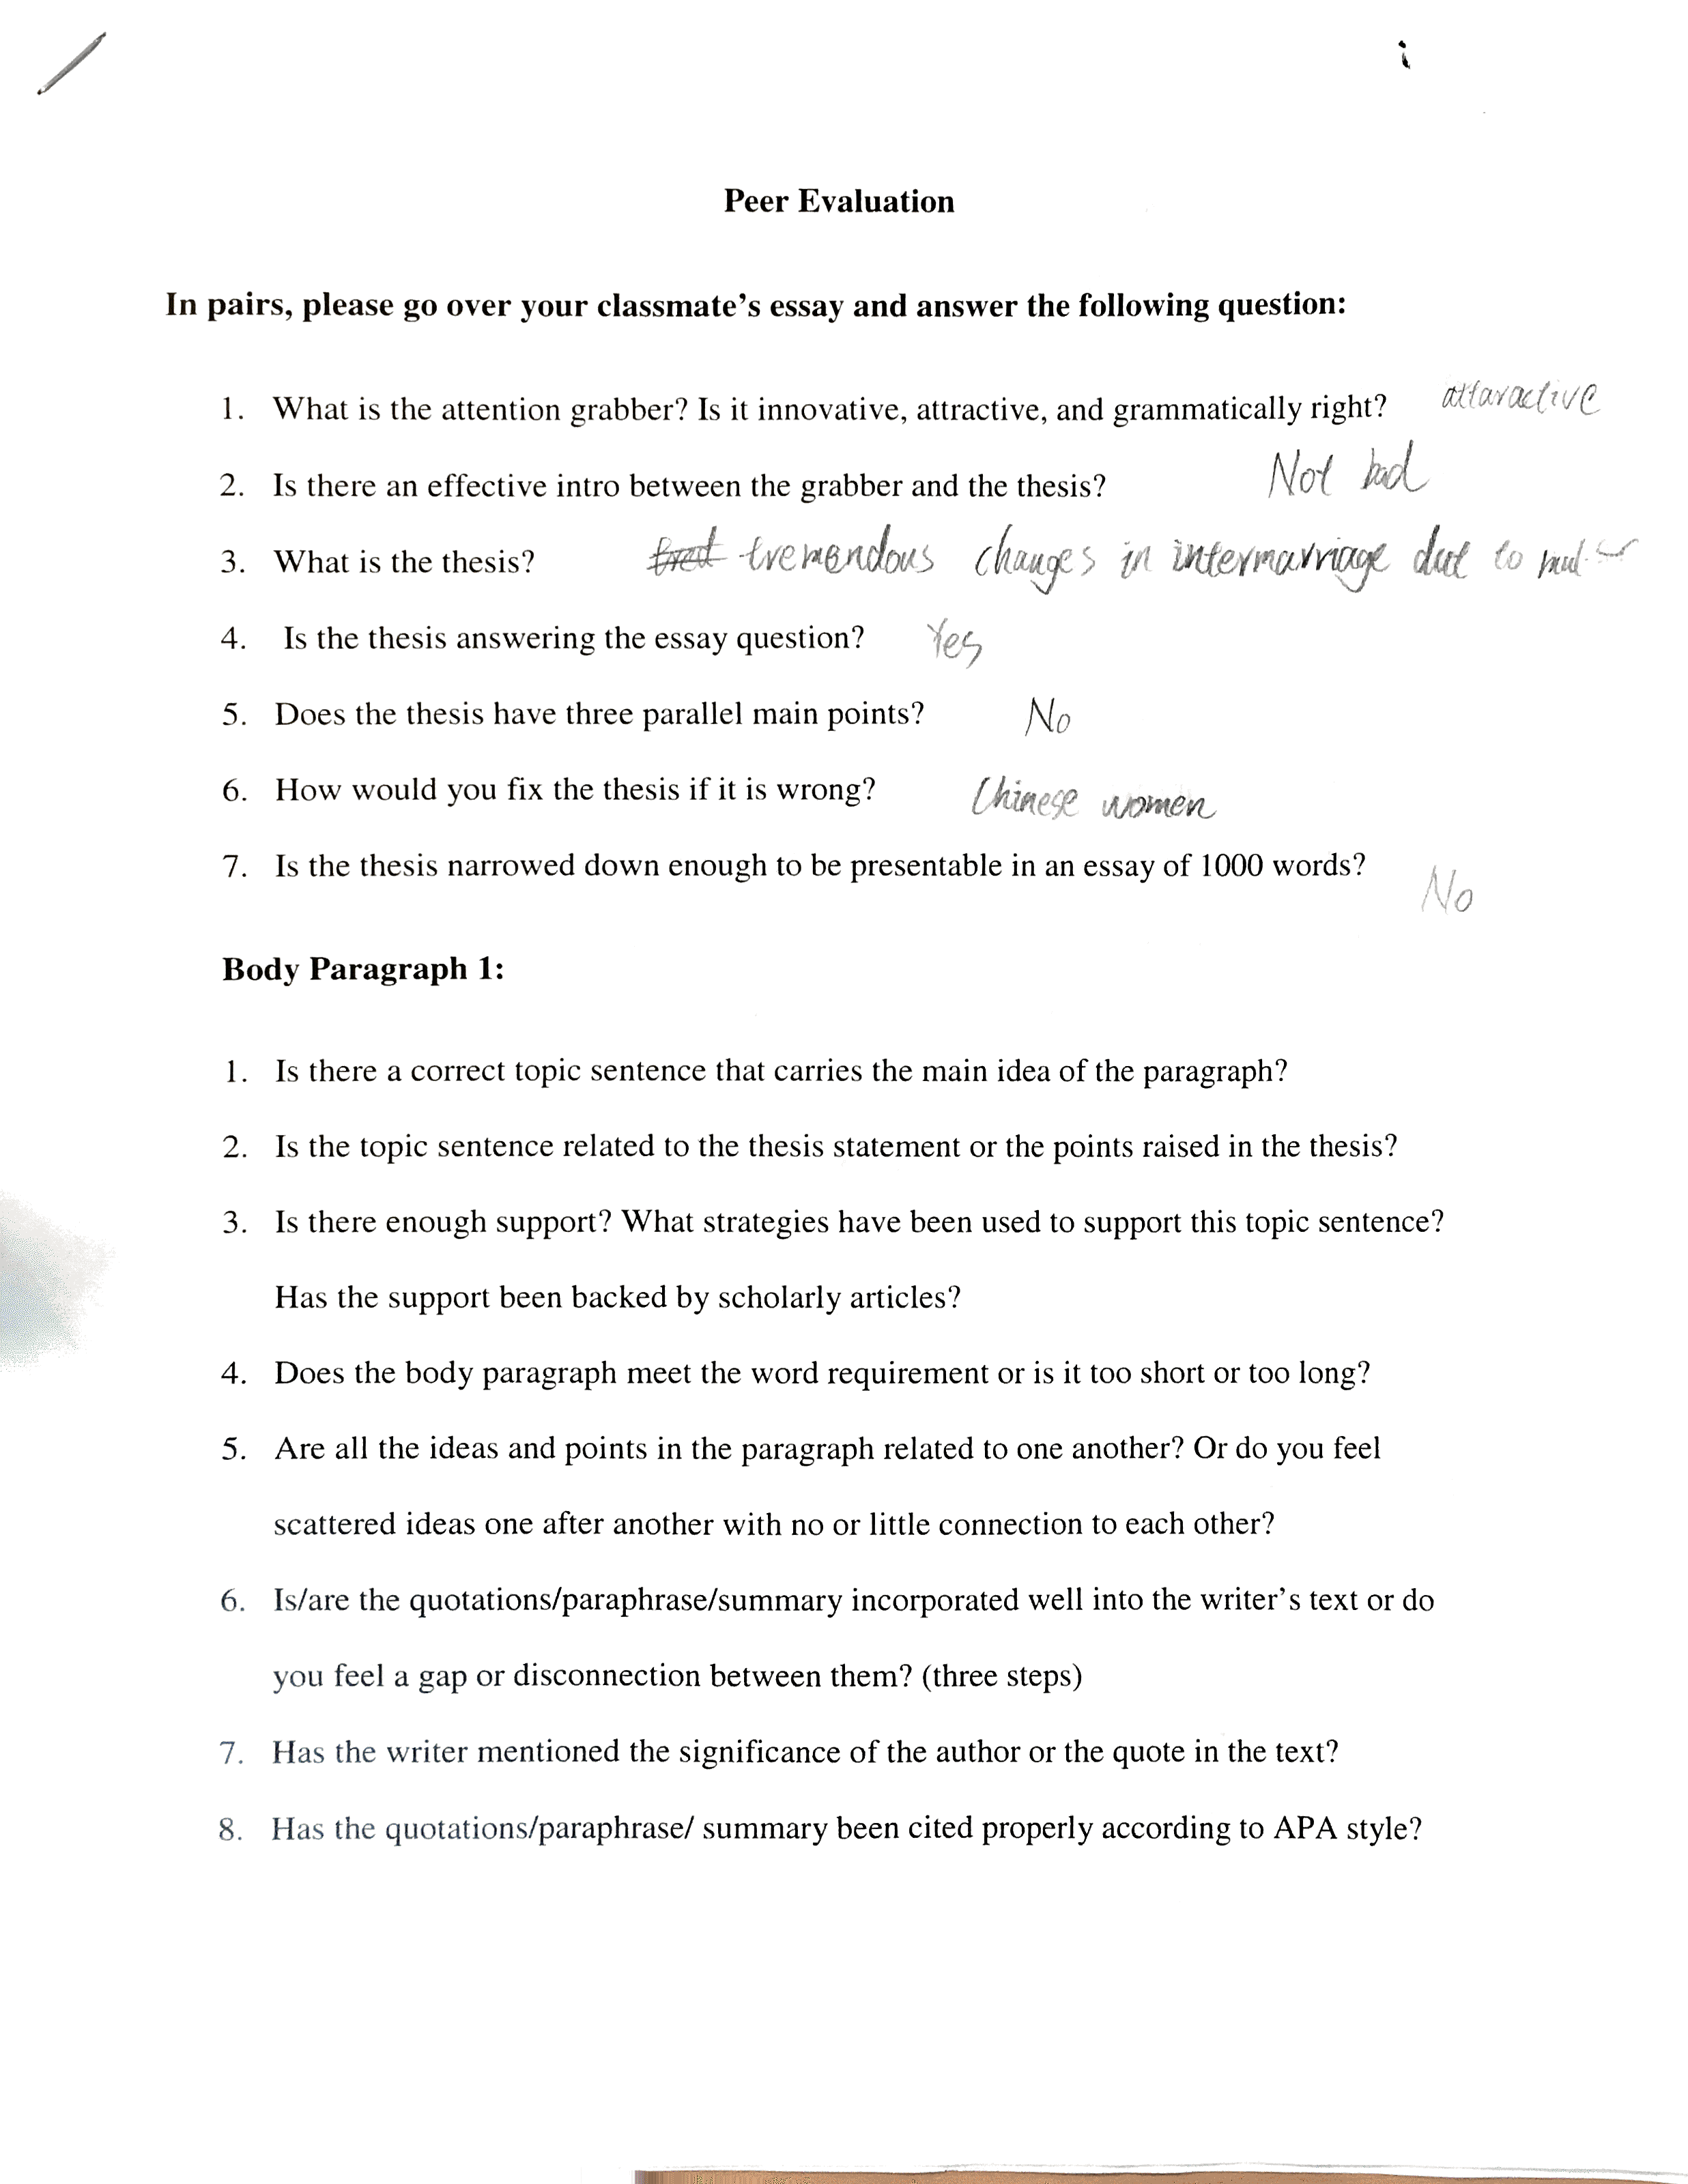 Peer Evaluation
In pairs, please go over your classmate's essay and answer the following question:
1. What is the attention grabber? Is it innovative, attractive, and grammatically right? attaractive
2. Is there an effective intro between the grabber and the thesis? Not bad
3. What is the thesis? tremendous changes in intermarriage due to
4. Is the thesis answering the essay question? Yes
5. Does the thesis have three parallel main points? No
6. How would you fix the thesis if it is wrong? Chinese women
7. Is the thesis narrowed down enough to be presentable in an essay of 1000 words? No
Body Paragraph 1:
1. Is there a correct topic sentence that carries the main idea of the paragraph?
2. Is the topic sentence related to the thesis statement or the points raised in the thesis?
3. Is there enough support? What strategies have been used to support this topic sentence?
Has the support been backed by scholarly articles?
4. Does the body paragraph meet the word requirement or is it too short or too long?
5. Are all the ideas and points in the paragraph related to one another? Or do you feel
scattered ideas one after another with no or little connection to each other?
6. Is/are the quotations/paraphrase/summary incorporated well into the writer's text or do
you feel a gap or disconnection between them? (three steps)
7. Has the writer mentioned the significance of the author or the quote in the text?
8. Has the quotations/paraphrase/ summary been cited properly according to APA style?